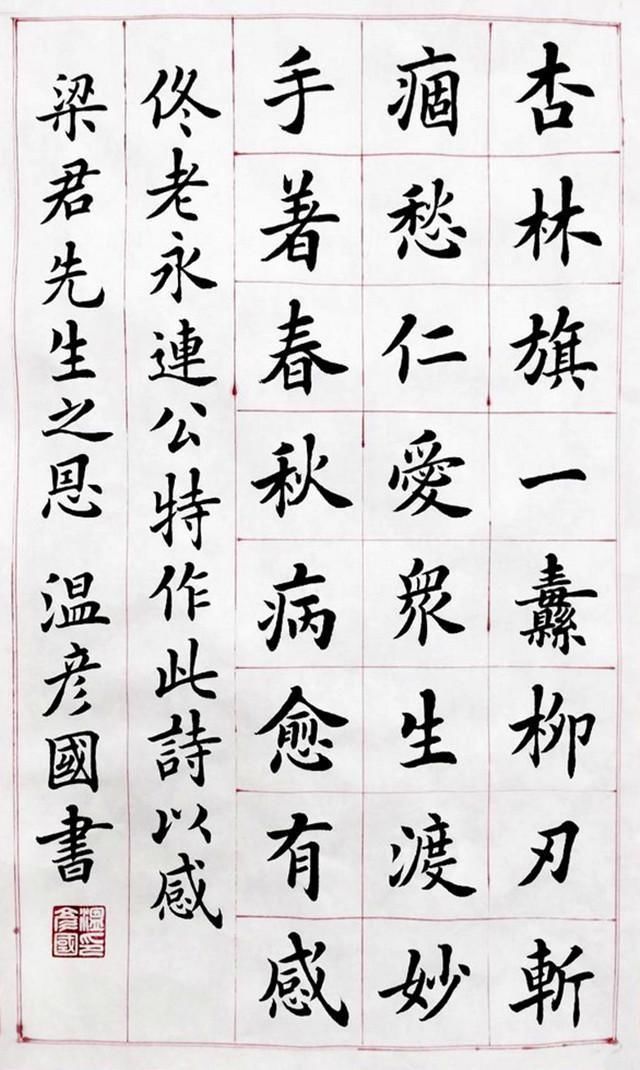 杏林旗一纛柳刃斬
痼愁仁愛眾生渡妙
手著春秋病愈有感
佟老永連公特作此詩以感
梁君先生之恩 温彦國書
温彦國印